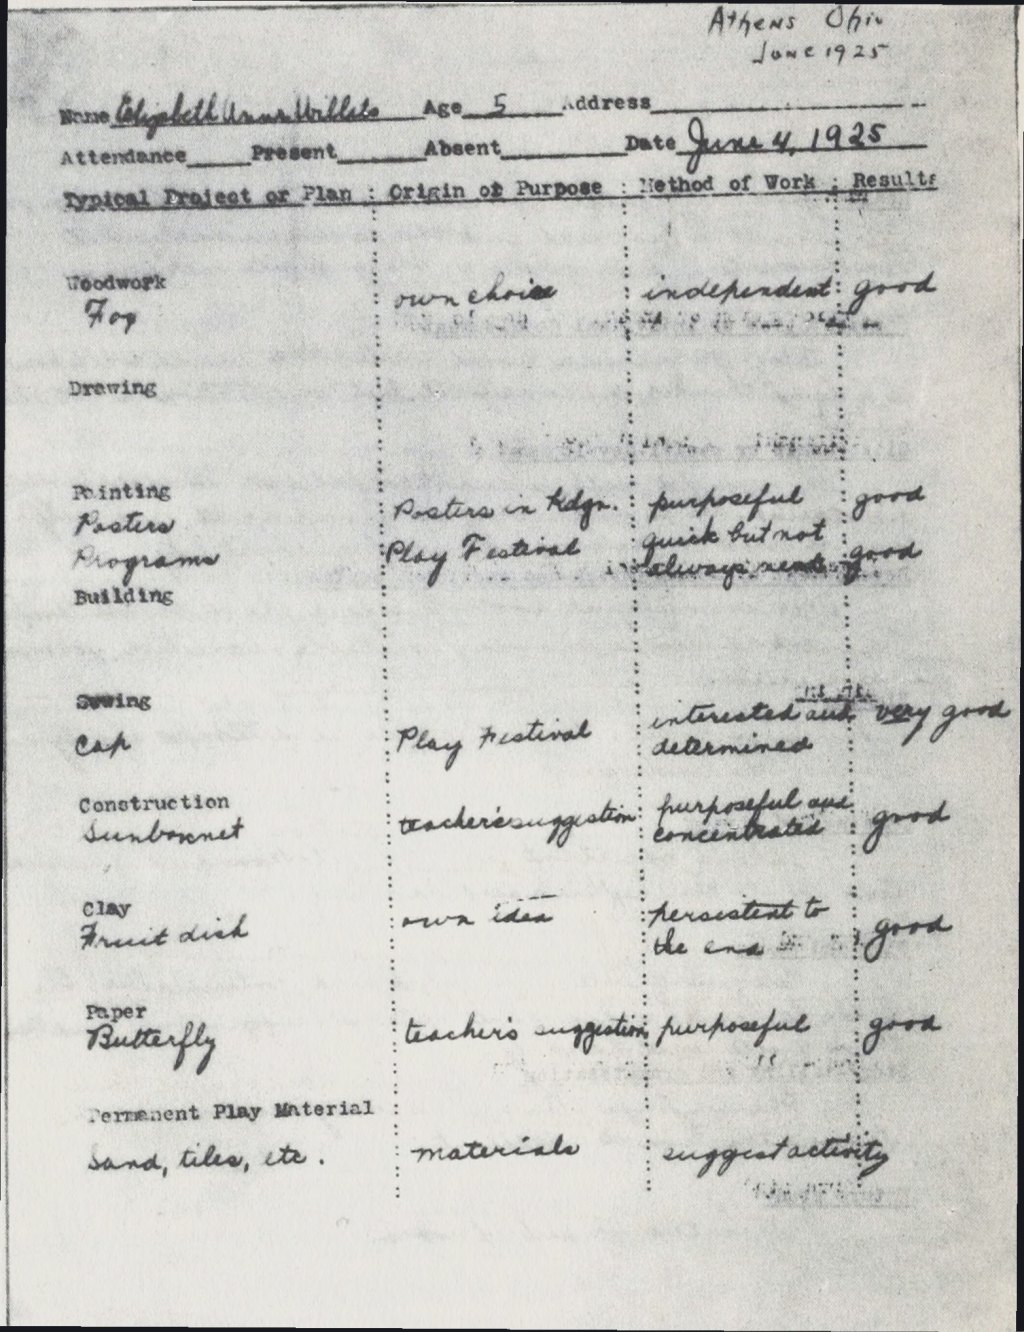 Athens Ohio
June 1925
Name Elizabeth Anne Willets Age 5 Address
Attendance Present Absent Date June 4, 1925
Typical Project or Plan : Origin of Purpose : Method of Work : Results
Woodwork
Toy own choice independent good
Drawing
Painting
Posters Posters in Kdgn. purposeful good
Programs Play Festival quick but not always neat good
Building
Sewing
Cap Play Festival interested and determined very good
Construction
Sunbonnet teacher's suggestion purposeful and concentrated good
Clay
Fruit dish own idea persistent to the end good
Paper
Butterfly teacher's suggestion purposeful good
Permanent Play Material
Sand, tiles, etc. materials suggest activity